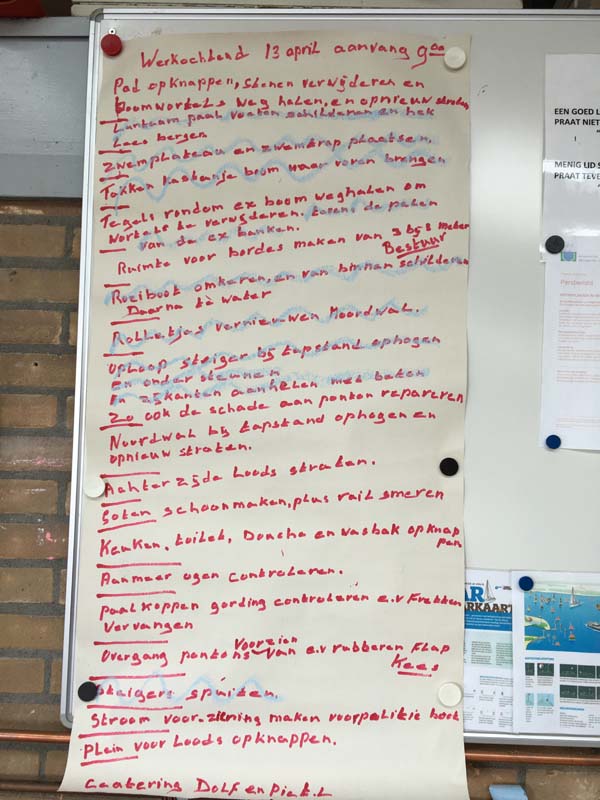 Werkochtend 13 april aanvang 9ºº
Pad opknappen, stenen verwijderen en
boomwortels weg halen, en opnieuw straten
Lantaarn paal voeten schilderen en hek
Lees bergen
Zwemplateau en zwemtrap plaatsen.
Takken kastanje boom naar voren brengen
Tegels rondom ex boom weghalen om
wortels te verwijderen. tevens de palen
van de ex banken.
Ruimte voor bordes maken van 3 bij 3 meter
Bestuur
Roeiboot omkeren, en van binnen schilderen
Daarna tè water
Rolletjes vernieuwen Noordwal.
Oploop steiger bij tapstand ophogen
en onder steunen
En zijkanten aanhelen met beton
Zo ook de schade aan ponton repareren
Noordwal bij tapstand ophogen en
opnieuw straten.
Achterzijde Loods straten.
Goten schoonmaken, plus rail smeren
Keuken, toilet, Douche en wasbak opknap
ppen
Aanmeer ogen controleren.
paalkoppen gording controleren e.v Frekken
Vervangen
Voorzien
Overgang pontons van e.v rubberen flap
Kees
Steigers spuiten.
Stroom voorziening maken voor politie boot
Plein voor Loods opknappen.
Caatering Dolf en Piet.L
EEN GOED L
PRAAT NIET
MENIG LID S
PRAAT TEVE
Persbericht
AR
ERKAART